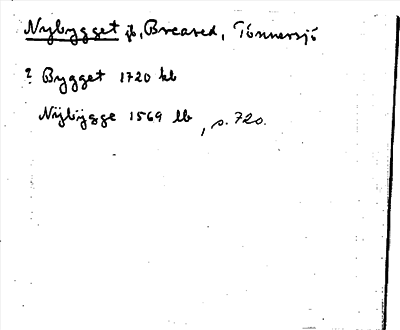 Nybygget jb, Breared, Tönnersjö
? Bygget 1720 kb
Nÿbÿgge 1569 lb, s. 720.